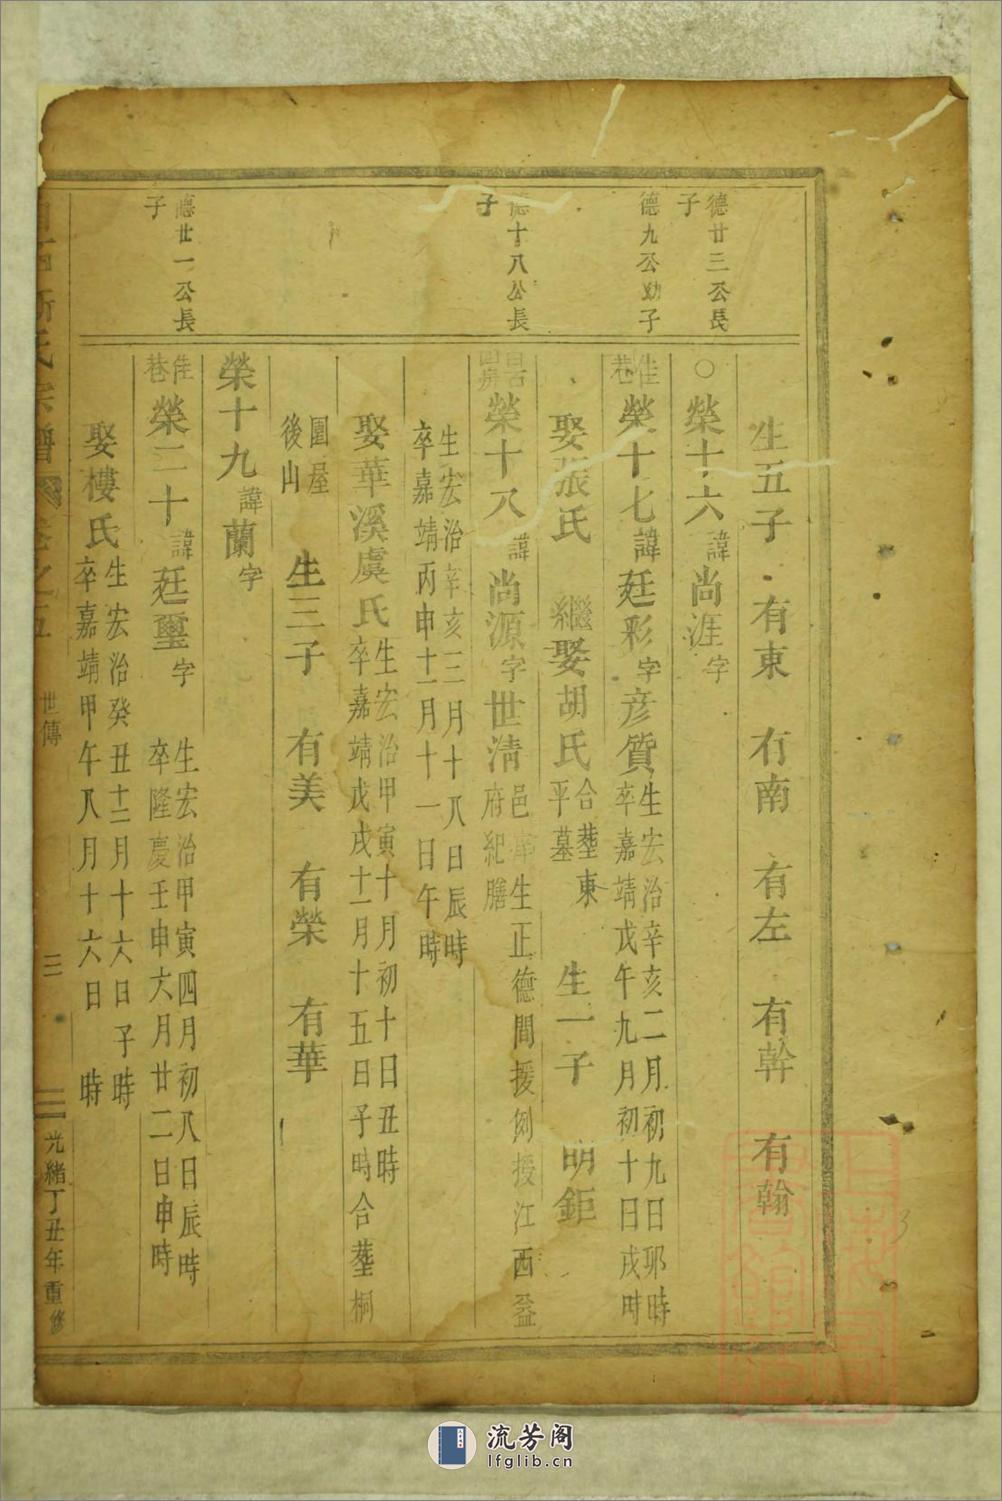 德廿三公長
子
德九公幼子
德十八公長
子
德廿一公長
子
生五子 有東 有南 有左 有幹 有翰
○榮十六諱尚涯字
佳
巷
榮十七諱廷彩字彥質
生宏治辛亥二月初九日耶時
卒嘉靖戊午九月初十日戌時
娶張氏 繼娶胡氏
合塟東
平墓
生一子 明鉅
榮十八諱尚源字世淸
邑庠生正德間援例授江西益
府紀膳
生宏治辛亥三月十八日辰時
卒嘉靖丙申十二月十一日午時
娶華溪虞氏
生宏治甲寅十月初十日丑時
卒嘉靖戊戌十一月十五日子時合塟桐
園屋
後山
生三子 有美 有榮 有華
榮十九諱蘭字
佳
巷
榮二十諱廷璽字
生宏治甲寅四月初八日辰時
卒隆慶壬申六月廿二日申時
娶樓氏
生宏治癸丑十二月十六日子時
卒嘉靖甲午八月十六日 時
氏宗譜 卷之五 世傳 三 光緒丁丑年重修
3
流芳阁
lfglib.cn